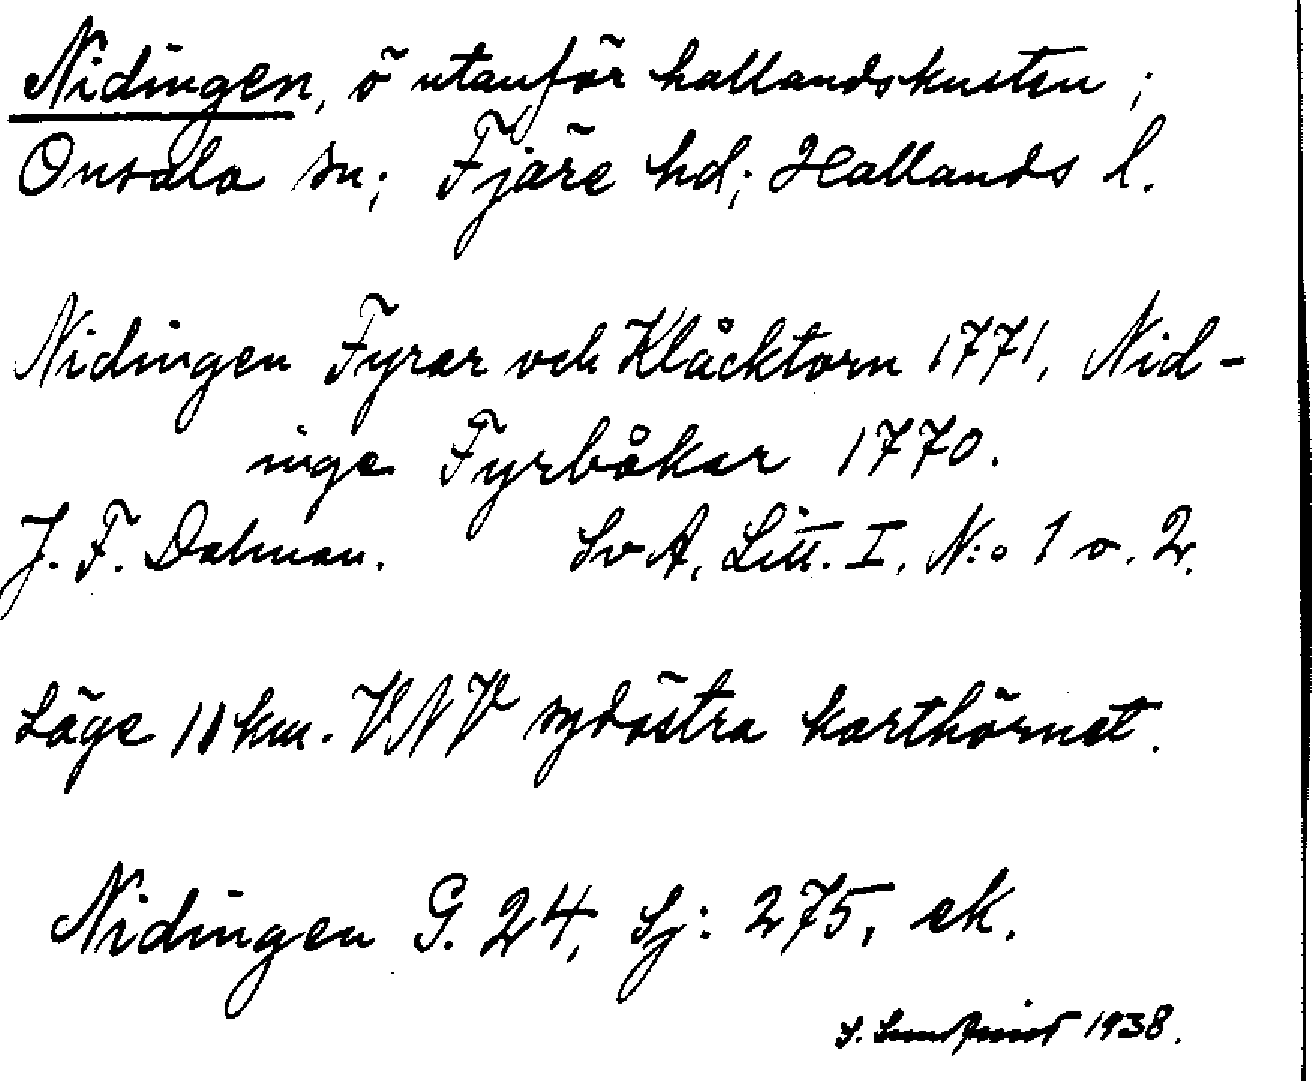 Nidingen, ö utanför hallandskusten;
Onsala sn; Fjäre hd; Hallands l.
Nidingen Fyrar och Klåcktorn 1771, Nid-
inge Fyrbåkar 1770.
J. F. Dalman. SvA, Litt. I, N:o 1 o. 2.
Läge 11 km. VNV sydöstra karthörnet.
Nidingen G. 24, Sj: 275, ek.
S. 1938.